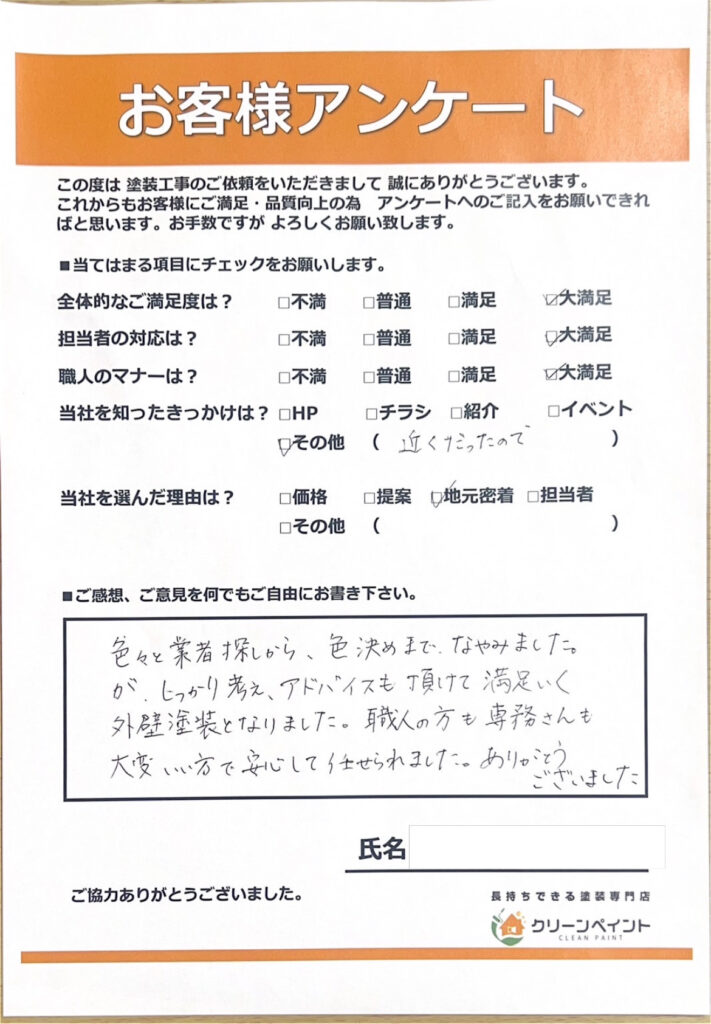 お客様アンケート
この度は 塗装工事のご依頼をいただきまして 誠にありがとうございます。
これからもお客様にご満足・品質向上の為　アンケートへのご記入をお願いできれ
ばと思います。お手数ですが よろしくお願い致します。
■当てはまる項目にチェックをお願いします。
全体的なご満足度は？ □不満 □普通 □満足 ☑大満足
担当者の対応は？ □不満 □普通 □満足 ☑大満足
職人のマナーは？ □不満 □普通 □満足 ☑大満足
当社を知ったきっかけは？ □HP □チラシ □紹介 □イベント
☑その他 （ 近くだったので ）
当社を選んだ理由は？ □価格 □提案 ☑地元密着 □担当者
□その他 （ ）
■ご感想、ご意見を何でもご自由にお書き下さい。
色々と業者探しから、色決めまで、なやみました。
が、しっかり考え、アドバイスも頂けて満足いく
外壁塗装となりました。職人の方も専務さんも
大変いい方で安心して任せられました。ありがとう
ございました
氏名
ご協力ありがとうございました。
長持ちできる塗装専門店
クリーンペイント
CLEAN PAINT